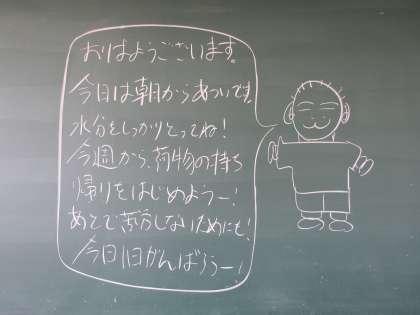 おはようございます。
今日は朝からあついです!
水分をしっかりとってね!
今週から、荷物の持ち
帰りをはじめようー!
あとで苦労しないためにも!
今日1日がんばろうー!